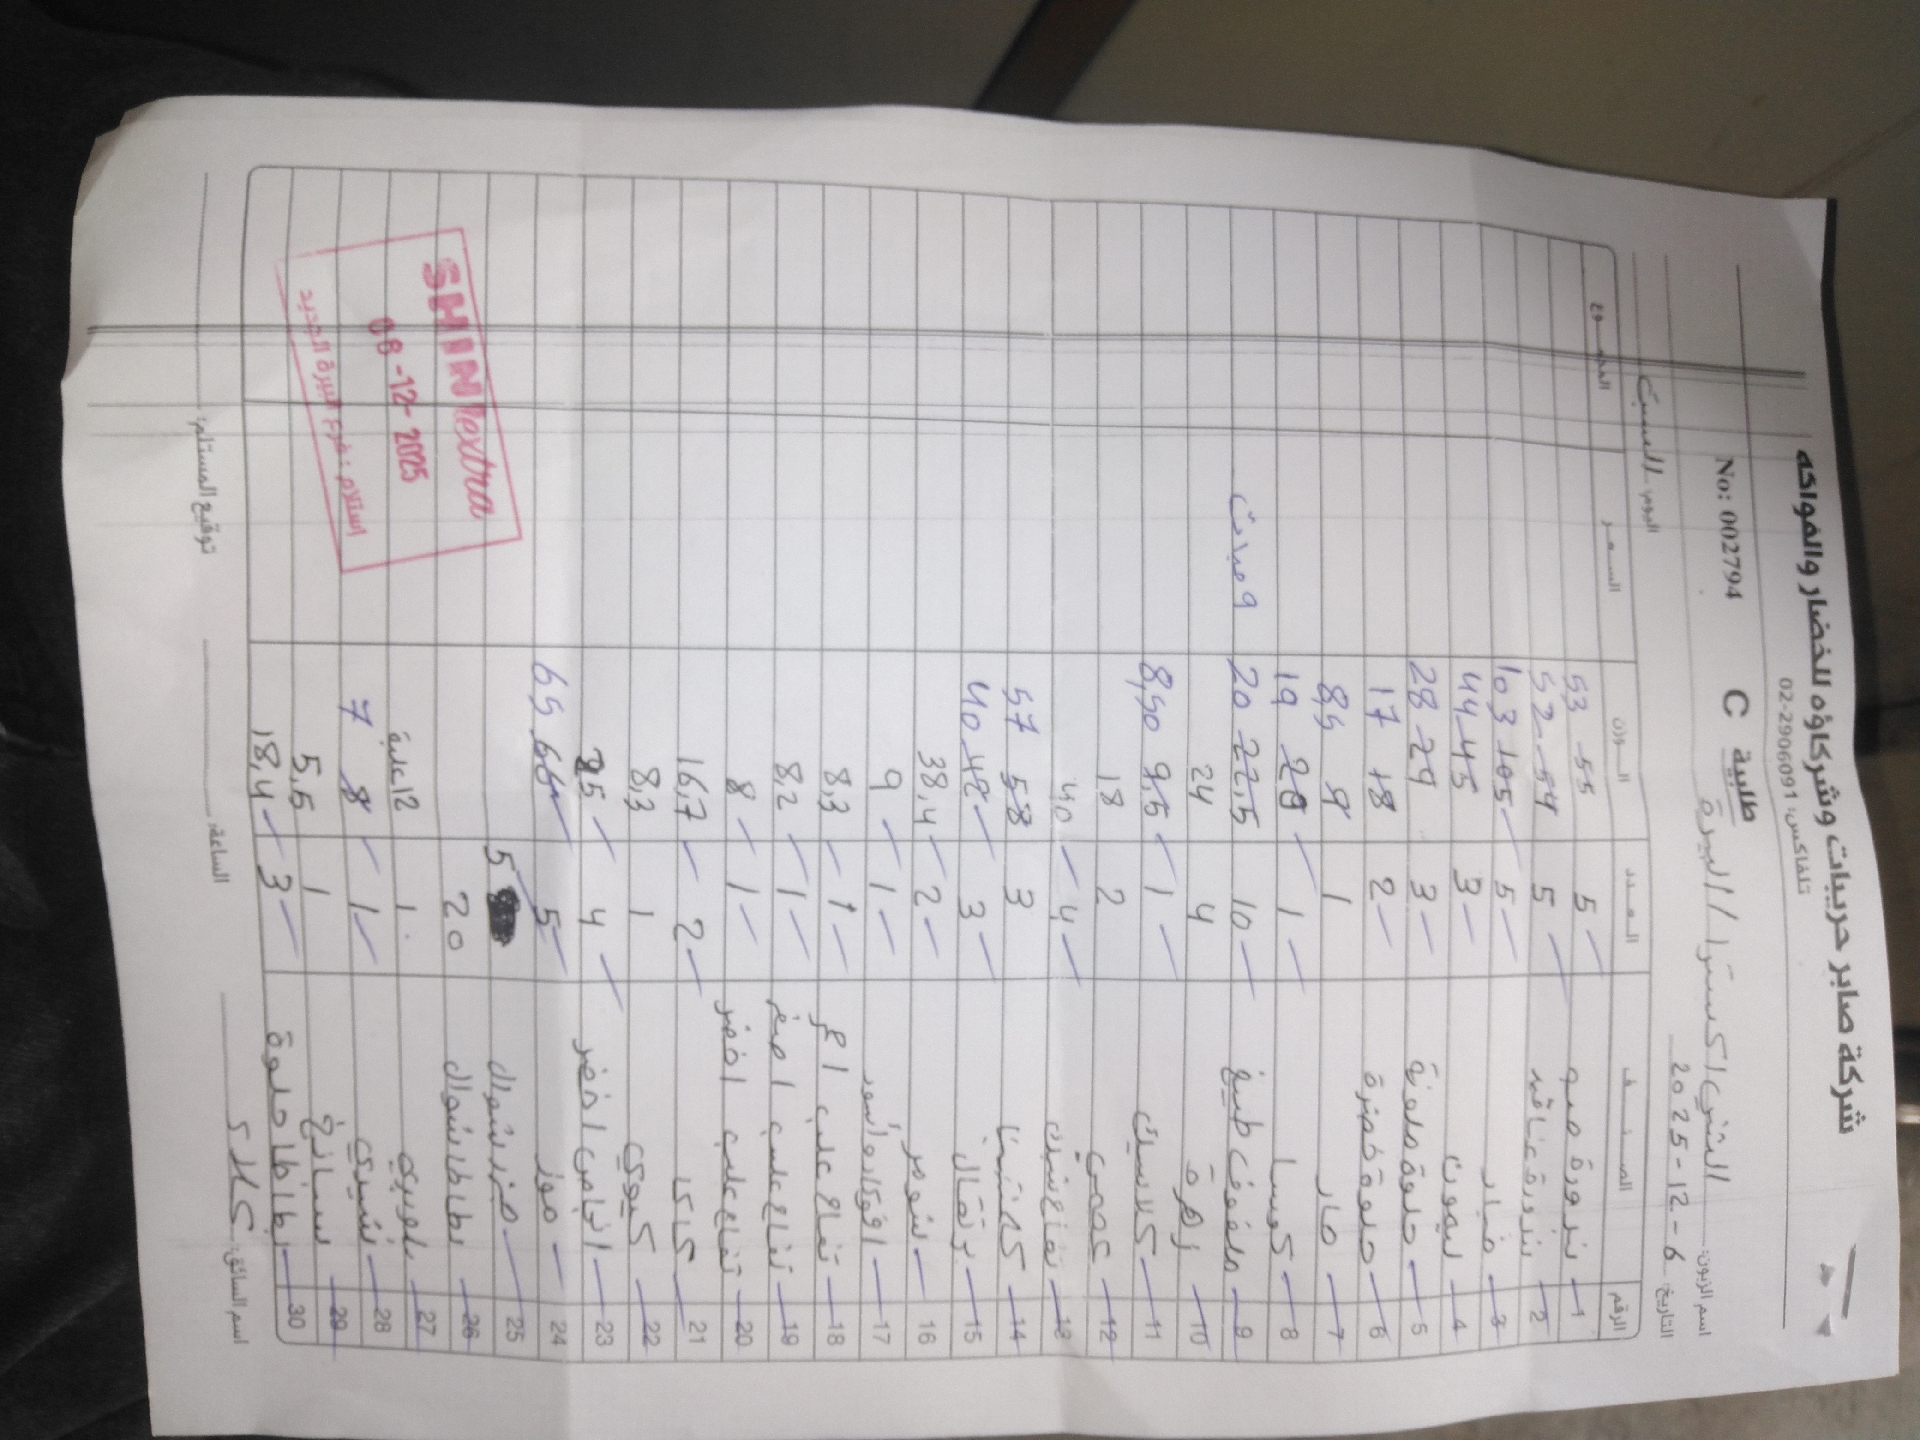 شركة صابر حربيات وشركاؤه للخضار والفواكه
تلفاكس: 02-2906091
طلبية C No: 002794
اسم الزبون: الشني اكسترا / البيرة
التاريخ: 2025-12-6 اليوم: السبت
الرقم الصنف العدد الوزن السعر المجموع
1 بندورة 5 55 53
2 بندورة عناقيد 5 54 52
3 خيار 5 105 103
4 ليمون 3 45 44
5 حلوة ملونة 3 29 28
6 حلوة خضرة 2 18 17
7 حار 1 9 8,5
8 كوسا 1 20 19
9 ملفوف 10 22,5 20
10 زهرة 4 24
11 كلاسيك 1 9,5 8,50
12 2 18
13 4 40
14 كلمنتينا 3 58 57
15 برتقال 3 42 40
16 شومر 2 38,4
17 افوكادو 1 9
18 تفاح علب 1 8,3
19 تفاح علب اصفر 1 8,2
20 تفاح علب اخضر 1 8
21 كاكا 2 16,7
22 كيوي 1 8,3
23 اجاص اخضر 4 25
24 موز 5 66 65
25 جزر شوال 5
26 بطاطا شوال 20
27 بلوبيري 1 12 علبة
28 شيري 1 8 7
29 سبانخ 1 5,5
30 بطاطا حلوة 3 18,4
SHINIextra
06-12-2025
استلام: فرع البيرة الجديد
اسم السائق: الساعة: توقيع المستلم: